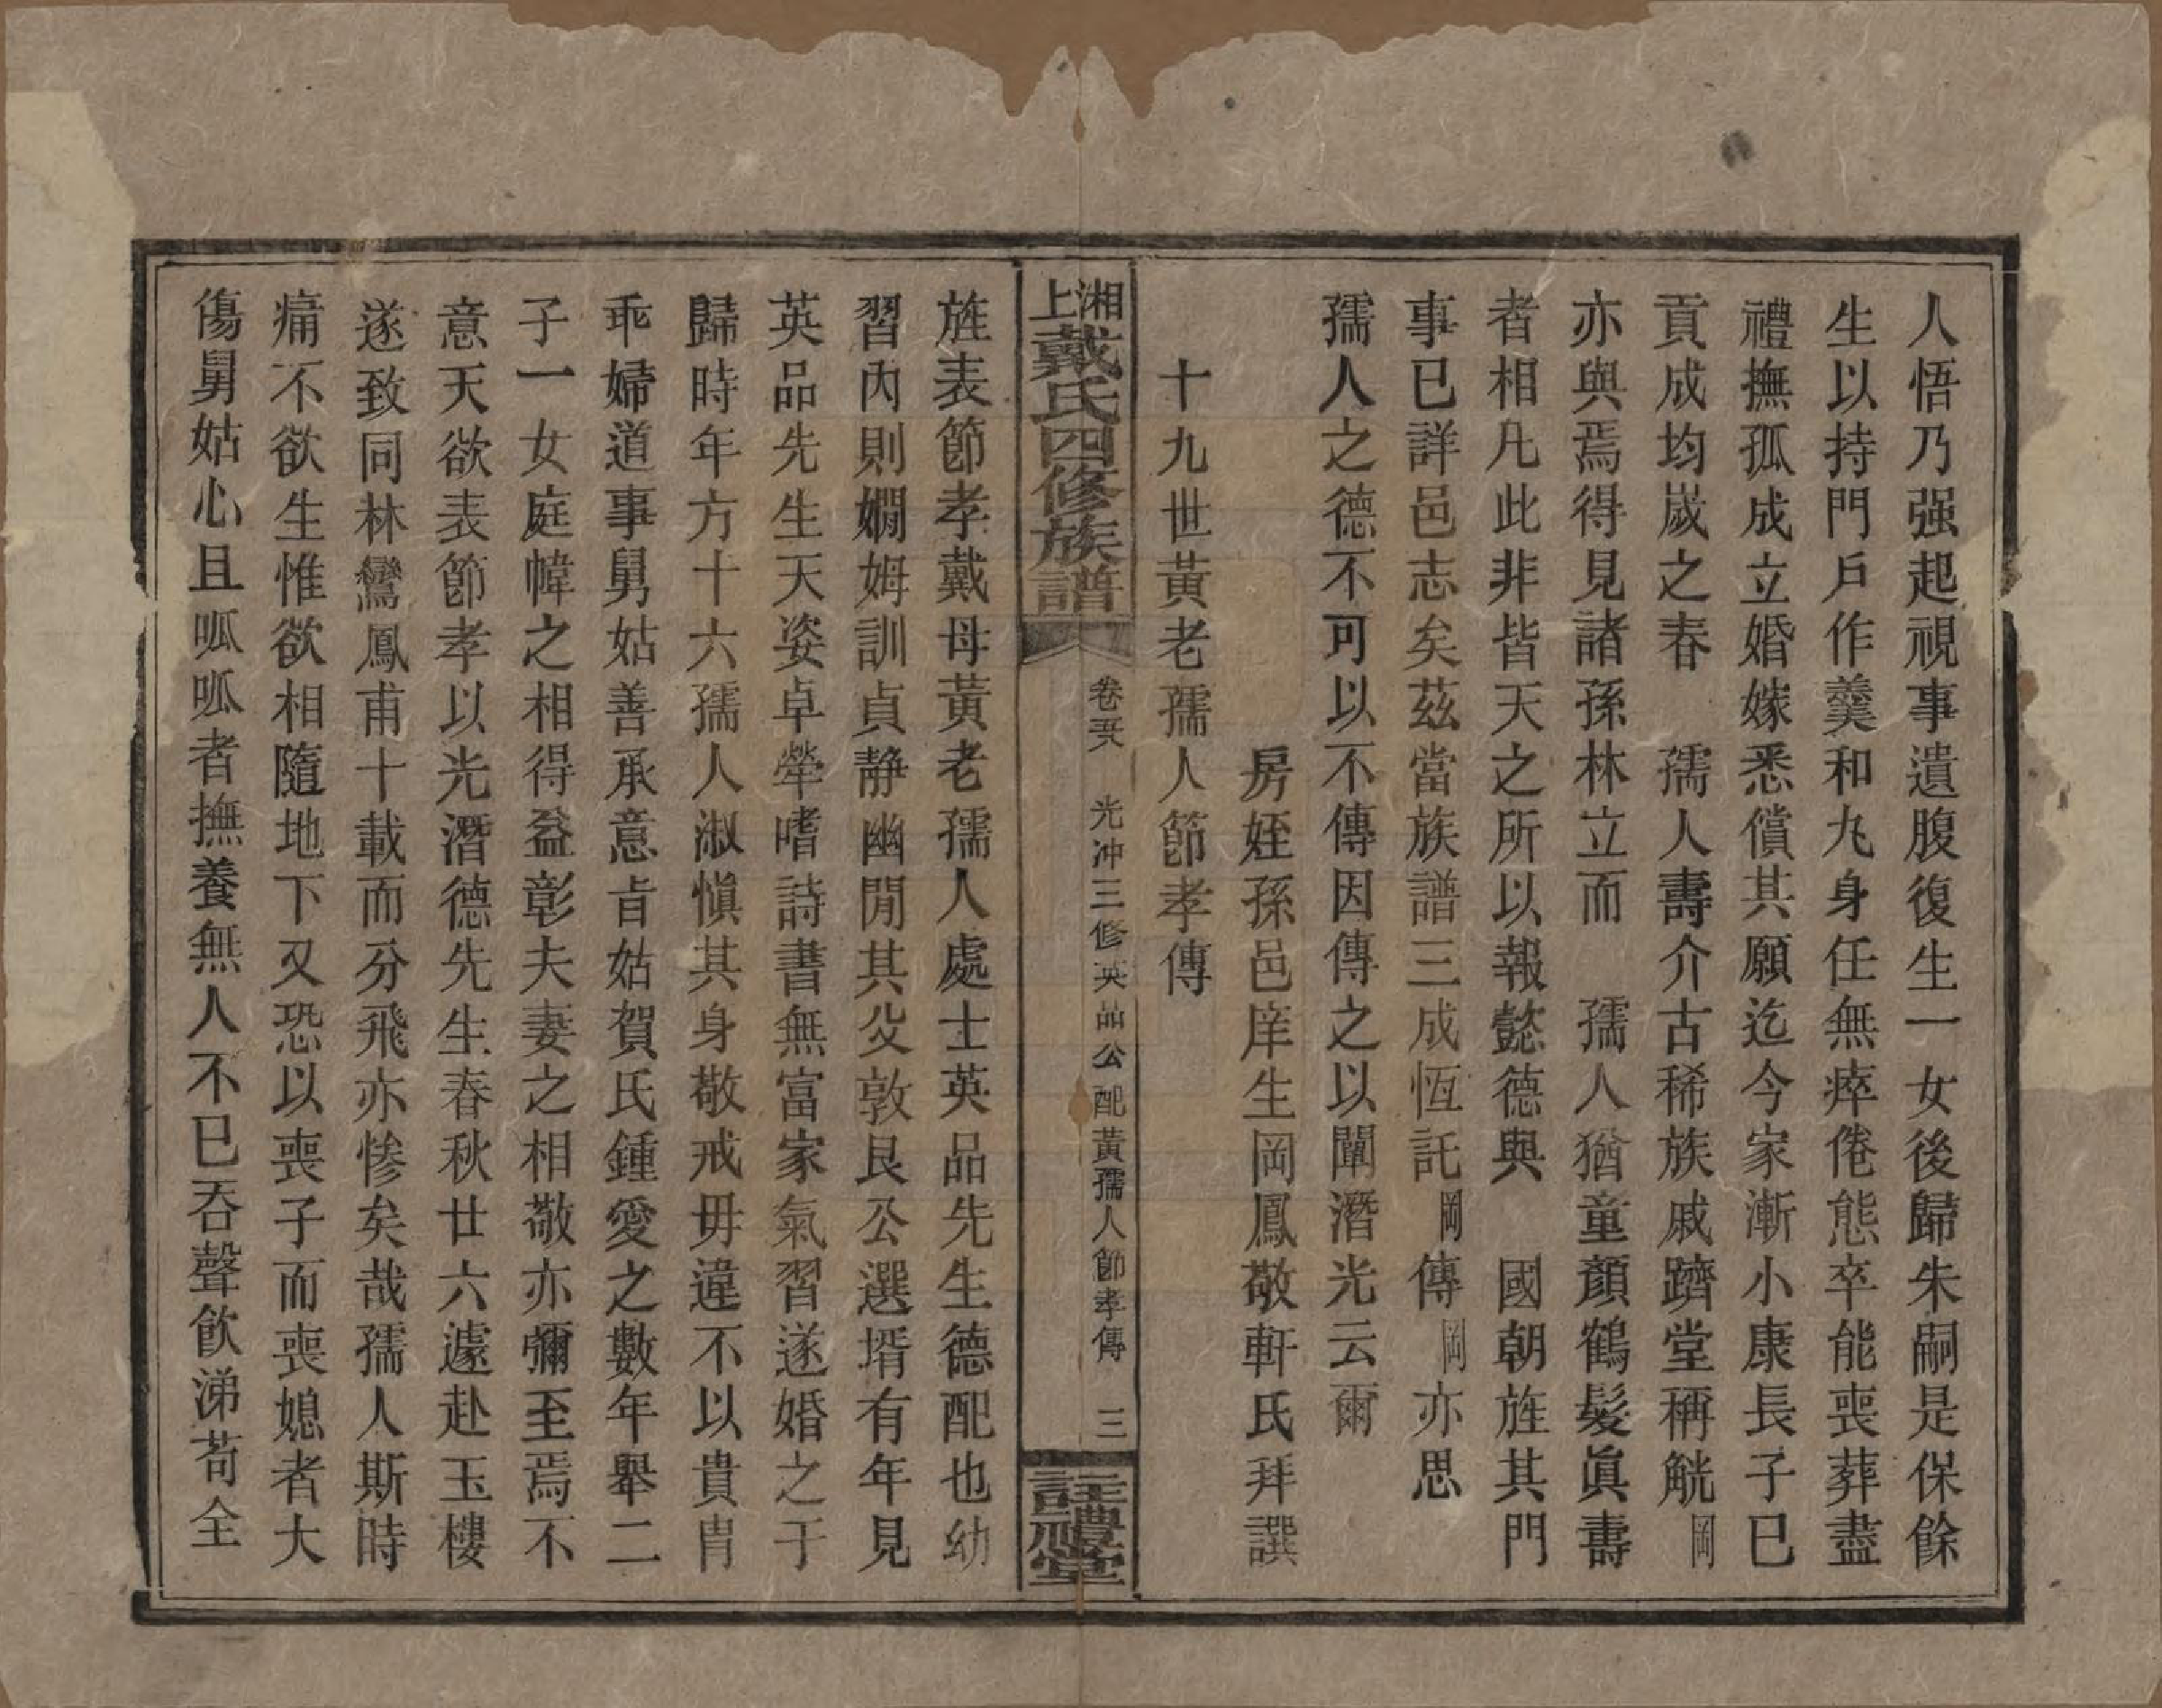 人悟乃强起視事遺腹復生一女後歸朱嗣是保餘
生以持門戶作羹和丸身任無瘁倦態卒能喪葬盡
禮撫孤成立婚嫁悉償其願迄今家漸小康長子已
貢成均嵗之春　孺人壽介古稀族戚躋堂稱觥岡
亦與焉得見諸孫林立而　孺人猶童顏鶴髮眞壽
者相凡此非皆天之所以報懿德與　國朝旌其門
事已詳邑志矣茲當族譜三成恆託岡傳岡亦思
孺人之德不可以不傳因傳之以闡潛光云爾
房姪孫邑庠生岡鳳敬軒氏拜譔
十九世黃老孺人節孝傳
湘上戴氏四修族譜
卷　光冲三修英品公配黃孺人節孝傳　三
註禮堂
旌表節孝戴母黃老孺人處士英品先生德配也幼
習內則嫺姆訓貞静幽閒其父敦艮公選壻有年見
英品先生天姿卓犖嗜詩書無富家氣習遂婚之于
歸時年方十六孺人淑愼其身敬戒毋違不以貴胄
乖婦道事舅姑善承意㫖姑賀氏鍾愛之數年舉二
子一女庭幃之相得益彰夫妻之相敬亦彌至焉不
意天欲表節孝以光潛德先生春秋廿六遽赴玉樓
遂致同林鸞鳳甫十載而分飛亦慘矣哉孺人斯時
痛不欲生惟欲相隨地下又恐以喪子而喪媳者大
傷舅姑心且呱呱者撫養無人不已吞聲飲涕苟全